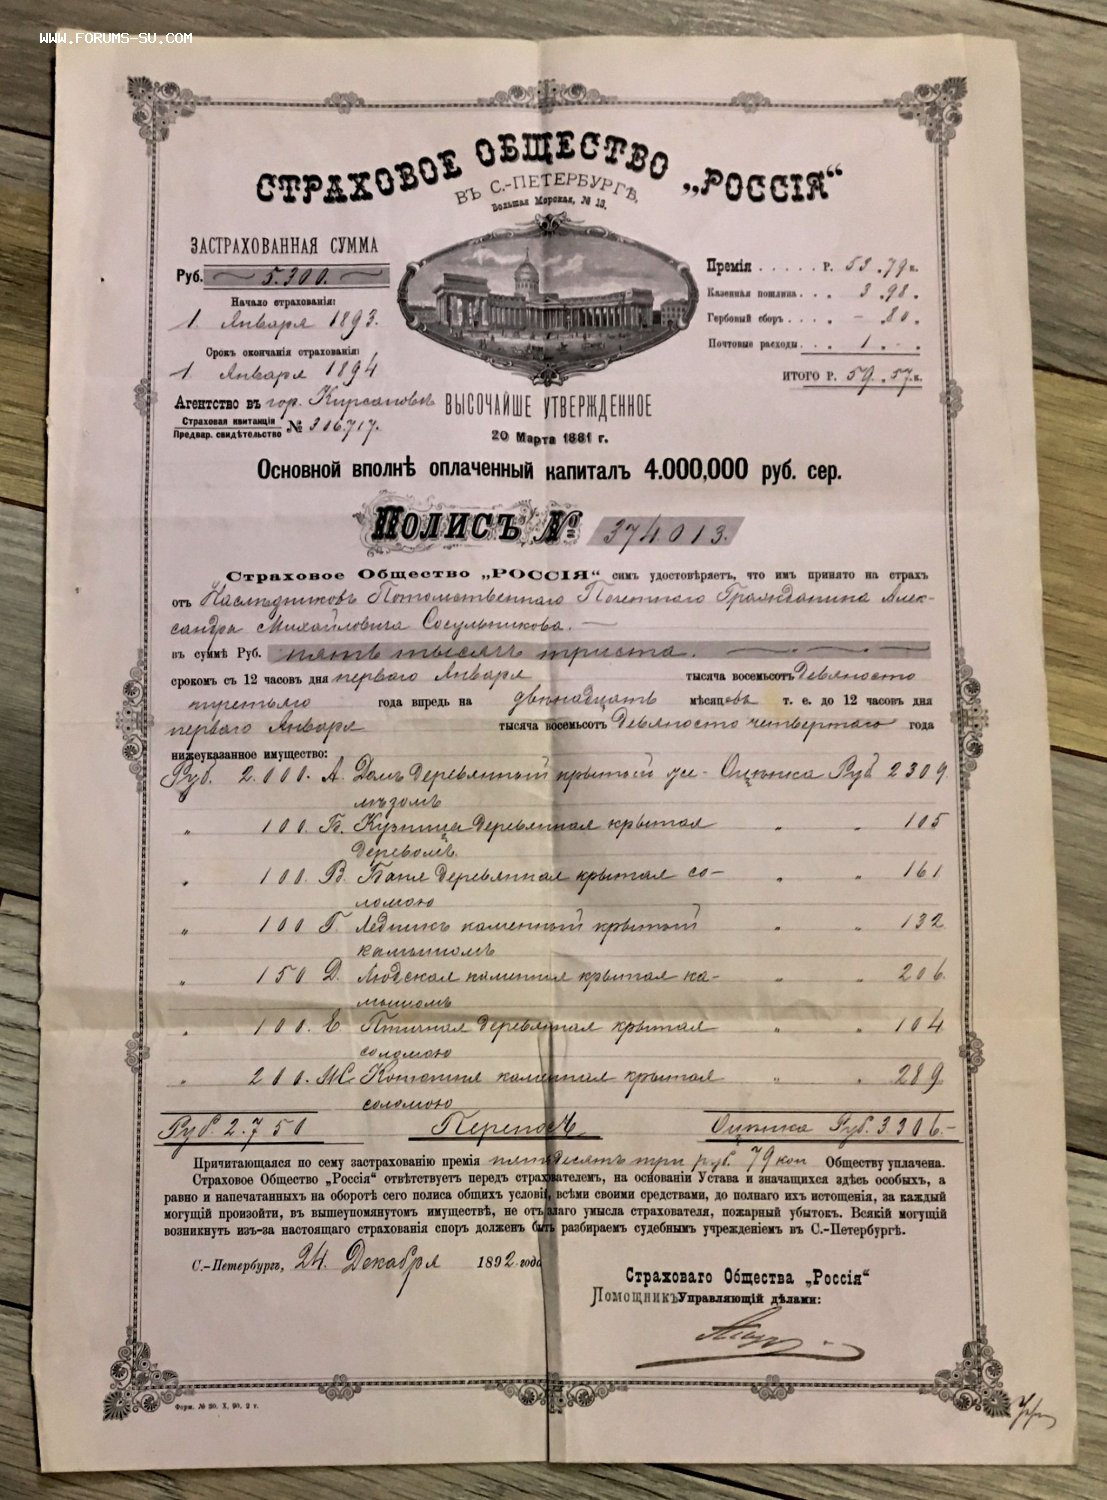 WWW.FORUMS-SU.COM
СТРАХОВОЕ ОБЩЕСТВО „РОССІЯ“
ВЪ С.-ПЕТЕРБУРГѢ,
Большая Морская, № 13.
ЗАСТРАХОВАННАЯ СУММА
Руб. 5.300.
Начало страхованія:
1. Января 1893.
Срокъ окончанія страхованія:
1. Января 1894
Агентство въ гор. Кирсановѣ
Страховая квитанція
Предвар. свидѣтельство № 306717.
Премія . . . . . Р. 53.79 к.
Казенная пошлина . . „ 3.98.
Гербовый сборъ . . . „ — .80.
Почтовые расходы . . „ 1 . - .
ИТОГО Р. 59.57 к.
ВЫСОЧАЙШЕ УТВЕРЖДЕННОЕ
20 Марта 1881 г.
Основной вполнѣ оплаченный капиталъ 4.000,000 руб. сер.
Полисъ № 374013.
Страховое Общество „РОССІЯ“ симъ удостовѣряетъ, что имъ принято на страхъ
отъ Наслѣдниковъ Потомственнаго Почетнаго Гражданина Алек-
сандра Михайловича Сосульникова. —
въ суммѣ Руб. пять тысячъ триста. — . — . —
срокомъ съ 12 часовъ дня перваго Января тысяча восемьсотъ Девяносто
третьяго года впредь на двѣнадцать мѣсяцевъ т. е. до 12 часовъ дня
перваго Января тысяча восемьсотъ Девяносто четвертаго года
нижеуказанное имущество:
Руб. 2.000. А. Домъ деревянный крытый же- Оцѣнка Руб 2309
лѣзомъ
„ 100. Б. Кузница деревянная крытая „ „ 105
деревомъ.
„ 100. В. Баня деревянная крытая со- „ „ 161
ломою
„ 100. Г. Ледникъ каменный крытый „ „ 132
камышомъ
„ 150 Д. Людская каменная крытая ка- „ „ 206.
мышомъ
„ 100. Е. Птичная деревянная крытая „ „ 104
соломою
„ 200. Ж Конюшня каменная крытая „ „ 289
соломою
Руб. 2.750 Переносъ Оцѣнка Руб. 3.306.-
Причитающаяся по сему застрахованію премія пятьдесятъ три руб. 79 коп Обществу уплачена.
Страховое Общество „Россія“ отвѣтствуетъ передъ страхователемъ, на основаніи Устава и значащихся здѣсь особыхъ, а
равно и напечатанныхъ на оборотѣ сего полиса общихъ условій, всѣми своими средствами, до полнаго ихъ истощенія, за каждый
могущій произойти, въ вышеупомянутомъ имуществѣ, не отъ злаго умысла страхователя, пожарный убытокъ. Всякій могущій
возникнуть изъ-за настоящаго страхованія споръ долженъ быть разбираемъ судебнымъ учрежденіемъ въ С.-Петербургѣ.
С.-Петербургъ, 24. Декабря 1892 года
Страховаго Общества „Россія“
Помощникъ Управляющій дѣлами:
Форм. № 20. X. 90. 2 т.